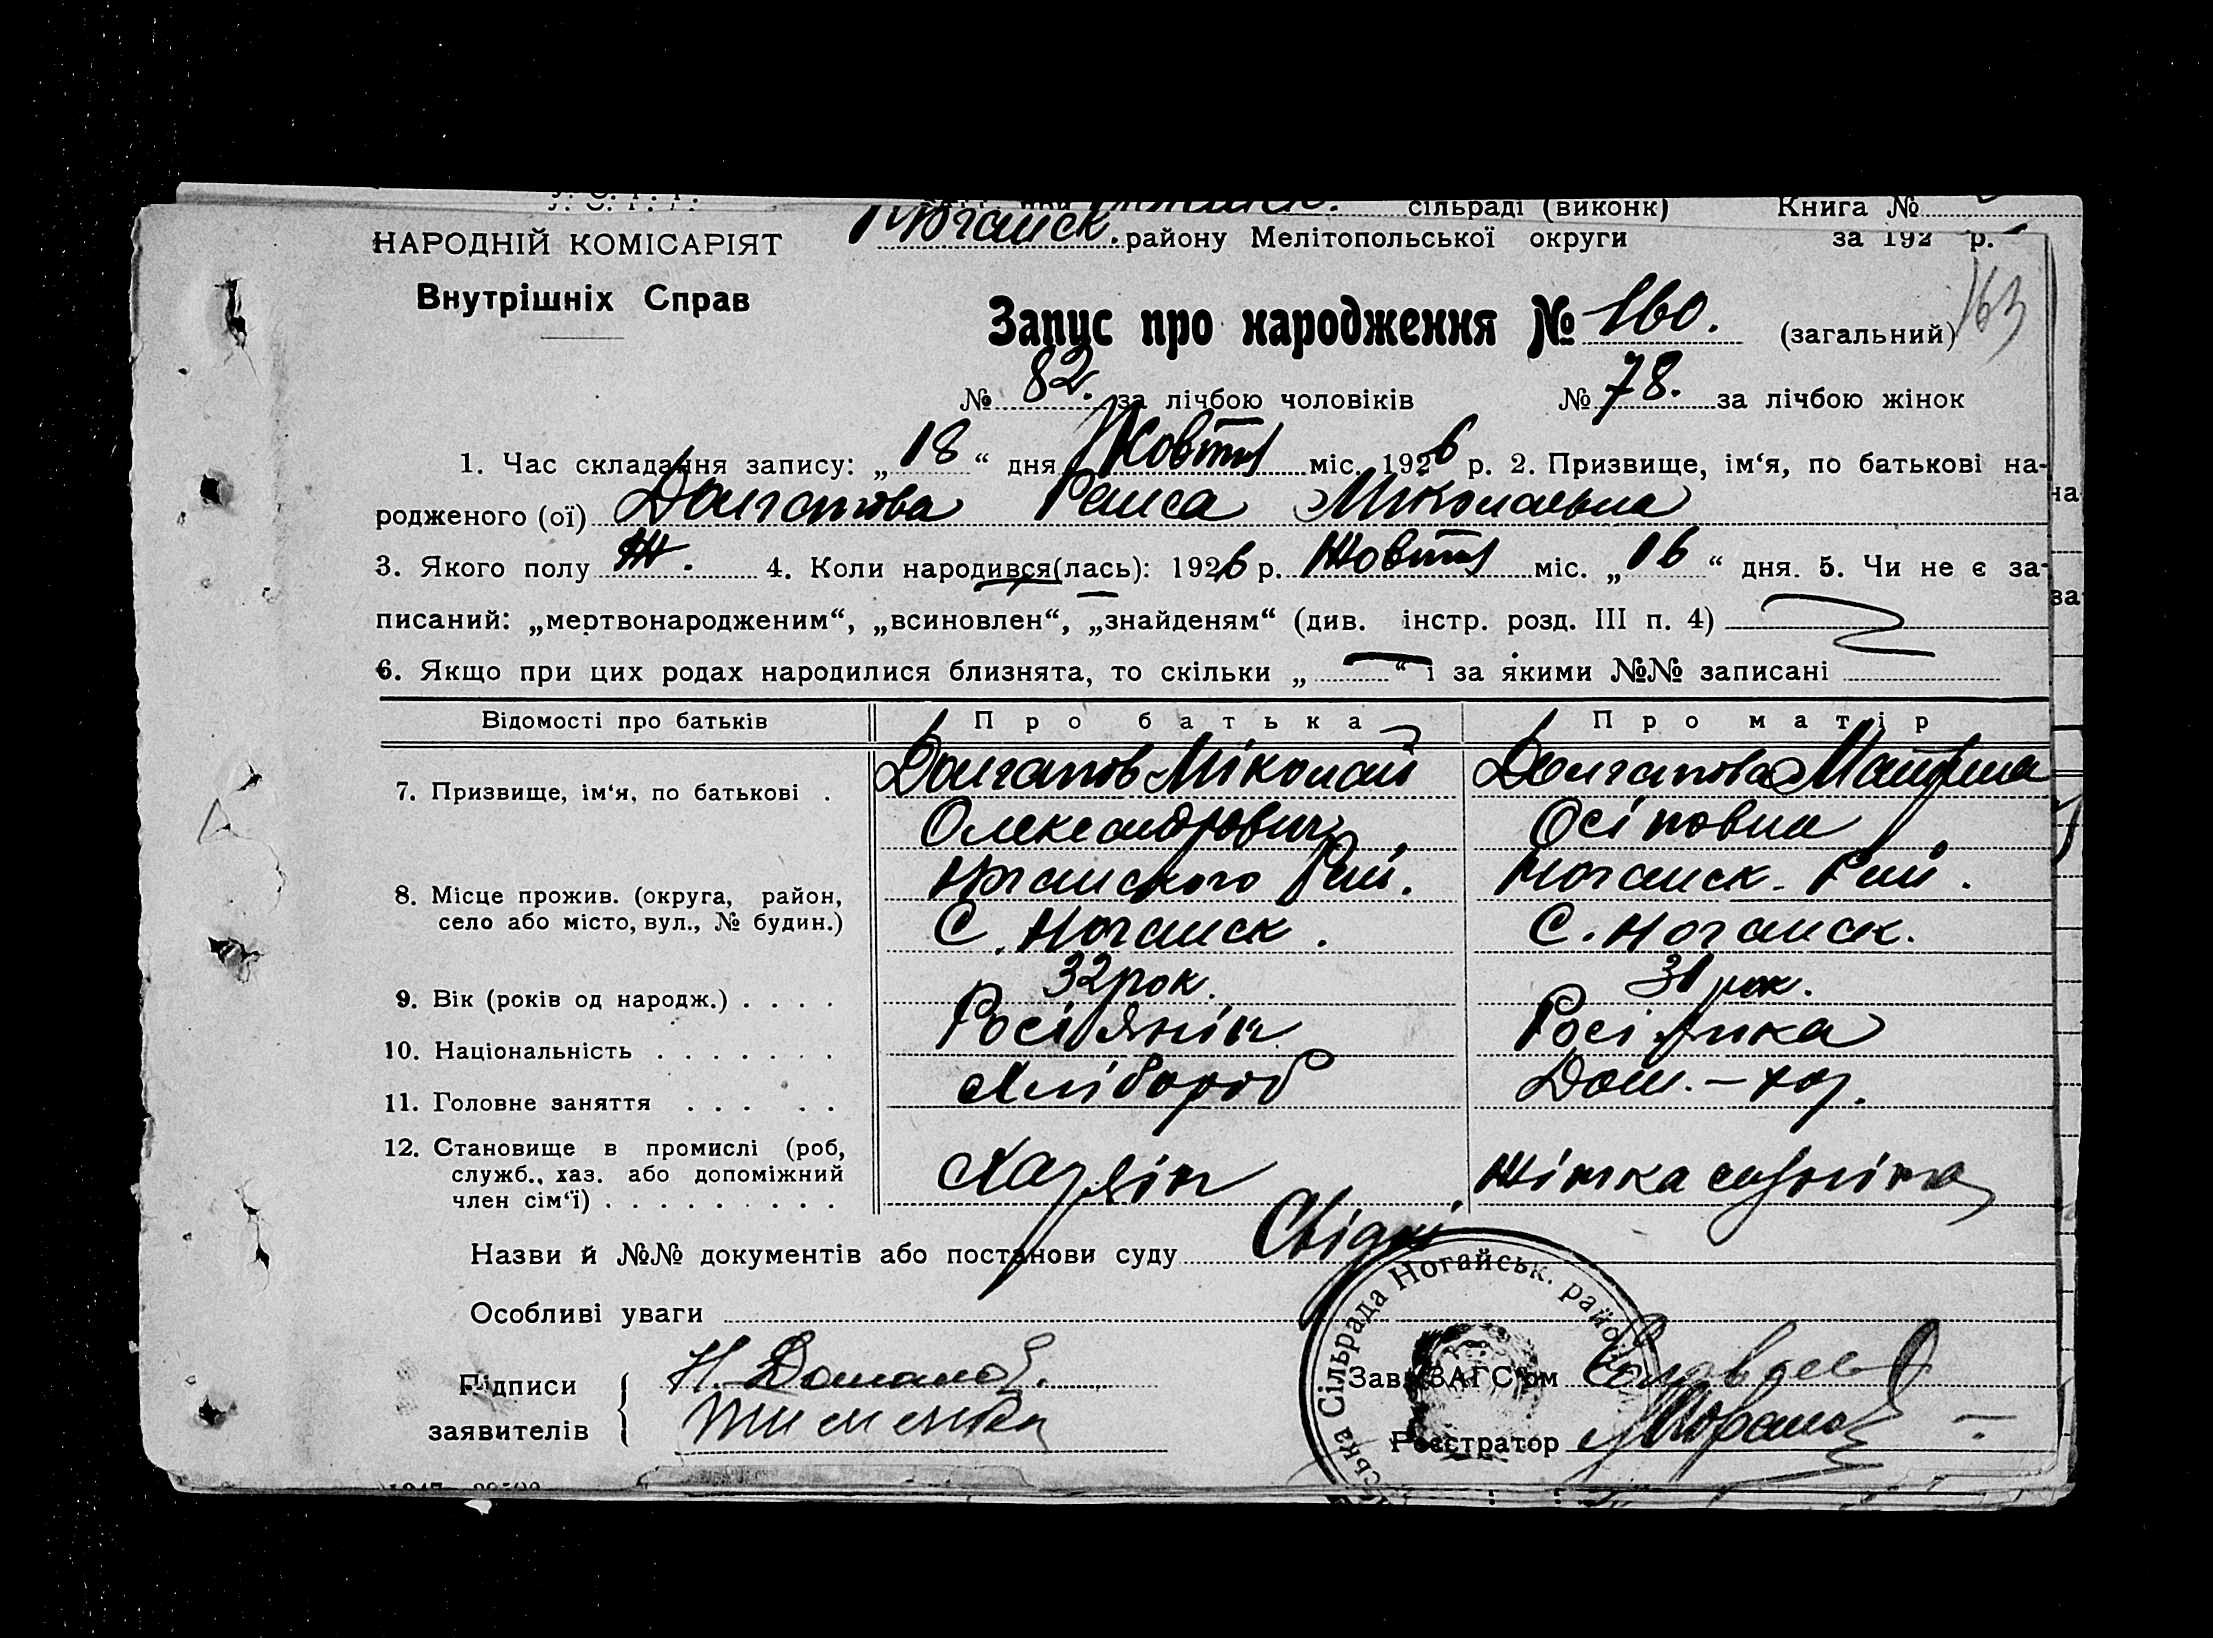 сільраді (виконк) Книга №
НАРОДНІЙ КОМІСАРІЯТ
Ногайск. району Мелітопольської округи за 192 р.
Внутрішніх Справ
163
Запис про народження № 160. (загальний)
№ 82. за лічбою чоловіків № 78. за лічбою жінок
1. Час складання запису: „ 18 “ дня Жовтн міс. 1926 р. 2. Призвище, ім‘я, по батькові на-
родженого (ої) Долгатова Раиса Міколаевна
3. Якого полу Ж. 4. Коли народився(лась): 1926 р. Жовтн міс. „ 16 “ дня. 5. Чи не є за-
писаний: „мертвонародженим“, „всиновлен“, „знайденям“ (див. інстр. розд. III п. 4)
6. Якщо при цих родах народилися близнята, то скільки „ “ і за якими №№ записані
Відомості про батьків Про батька Про матір
7. Призвище, ім‘я, по батькові . Долгатов Міколай Долгатова
Олександрович Осіповна
8. Місце прожив. (округа, район, Ногайского Рай. Ногайск. Рай.
село або місто, вул., № будин.) С. Ногайск. С. Ногайск.
9. Вік (років од народж.) . . . . 32 рок. 31 рок.
10. Національність . . . . . . . Росіянін Росіянка
11. Головне заняття . . . . . Хлібороб Дом. – хоз.
12. Становище в промислі (роб,
служб., хаз. або допоміжний
член сім‘ї) . . . . . . . . . Хазяін Жінка
Назви й №№ документів або постанови суду Свідкі
Особливі уваги
Сільрада Ногайськ. райо
Підписи
заявителів
Н.
Зав. ЗАГС‘ом
Реєстратор